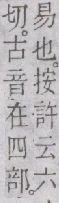 易也。按許云六
切。古音在四部。